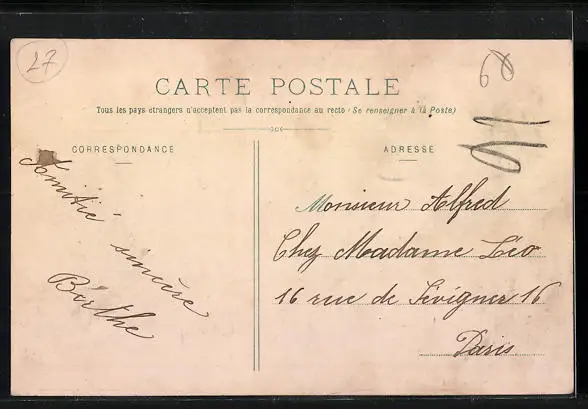 27
CARTE POSTALE
Tous les pays étrangers n'acceptent pas la correspondance au recto (Se renseigner à la Poste)
CORRESPONDANCE
Amitié
sincère
Berthe
ADRESSE
Monsieur Alfred
Chez Madame Léo
16 rue de Sévigner 16
Paris